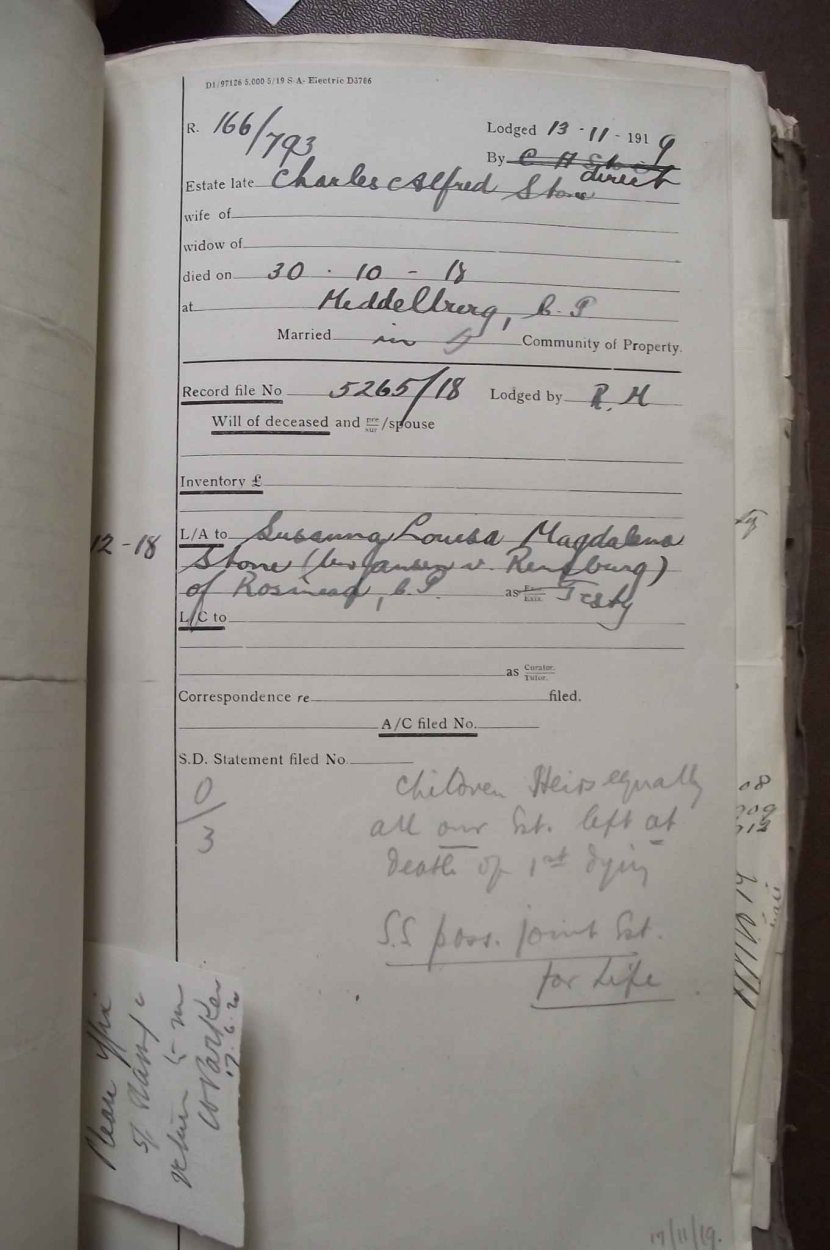 D1/97126 5,000 5/19 S A. Electric D3786
R. 166/793
Lodged 13 - 11 - 1919
By C H Stone direct
Estate late Charles Alfred Stone
wife of
widow of
died on 30 . 10 - 18
at Middelburg, C.P
Married in Community of Property.
Record file No 5265/18 Lodged by R. M
Will of deceased and pre/sur /spouse
Inventory £
12-18
L/A to Susanna Louisa Magdalena
Stone (born Jansen v. Rensburg)
of Rosmead, C.P. as Exor. Exix. Testy
L/C to
as Curator. Tutor.
Correspondence re filed.
A/C filed No.
S.D. Statement filed No.
0/3
Children Heirs equally
all our Est. left at
death of 1st dying
S.S poss. joint Est.
for Life
Please affix
5/ stamp &
return to me
W Parker
17.6.20
17/11/19.